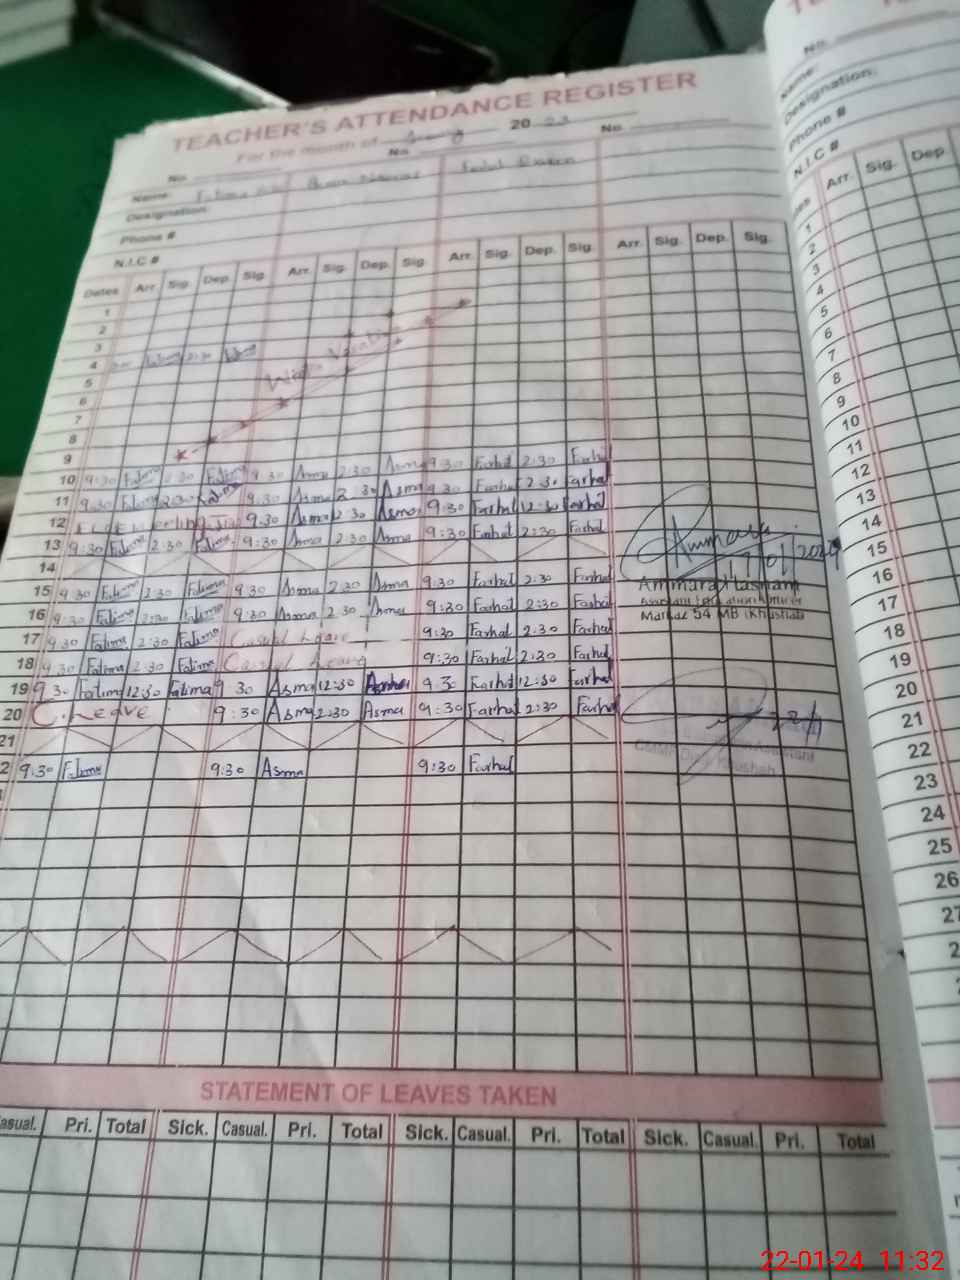 TEACHER'S ATTENDANCE REGISTER
For the month of 20
No. No. No.
Name:
Designation:
Phone #
N.I.C #
Dates Arr. Sig. Dep. Sig. Arr. Sig. Dep. Sig. Arr. Sig. Dep. Sig. Arr. Sig. Dep. Sig.
1
2
3
4
5
6
7
8
9
10 9:30 Fatima 2:30 Fatima 9:30 Asma 2:30 Asma 9:30 Farhat 2:30 Farhat
11 9:30 Fatima 2:30 Fatima 9:30 Asma 2:30 Asma 9:30 Farhat 2:30 Farhat
12 9:30 Asma 12:30 Asma 9:30 Farhat 12:30 Farhat
13 9:30 Fatima 2:30 Fatima 9:30 Asma 2:30 Asma 9:30 Farhat 2:30 Farhat
14
15 9:30 Fatima 2:30 Fatima 9:30 Asma 2:30 Asma 9:30 Farhat 2:30 Farhat
16 9:30 Fatima 2:30 Fatima 9:30 Asma 2:30 Asma 9:30 Farhat 2:30 Farhat
17 9:30 Fatima 2:30 Fatima Casual Leave 9:30 Farhat 2:30 Farhat
18 9:30 Fatima 2:30 Fatima Casual Leave 9:30 Farhat 2:30 Farhat
19 9:30 Fatima 12:30 Fatima 9:30 Asma 12:30 Asma 9:30 Farhat 12:30 Farhat
20 C. Leave 9:30 Asma 2:30 Asma 9:30 Farhat 2:30 Farhat
21
2 9:30 Fatima 9:30 Asma 9:30 Farhat
Ammara Hashmi
Assistant Education Officer
Markaz 54 MB (Khushab
STATEMENT OF LEAVES TAKEN
asual. Pri. Total Sick. Casual. Pri. Total Sick. Casual. Pri. Total Sick. Casual. Pri. Total
No.
Name:
Designation:
Phone #
N.I.C #
Arr. Sig. Dep
1
2
3
4
5
6
7
8
9
10
11
12
13
14
15
16
17
18
19
20
21
22
23
24
25
26
27
22-01-24 11:32